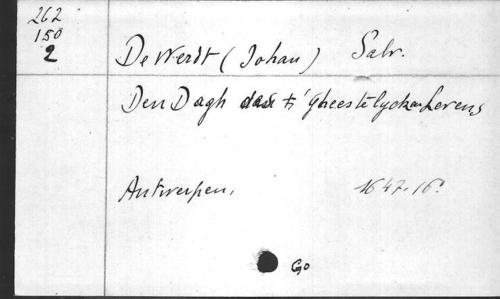 262
150
2
De Werdt (Johan) Salv.
Den Dagh des t' Gheestelycken Levens
Antwerpen, 1647. 16°
Go